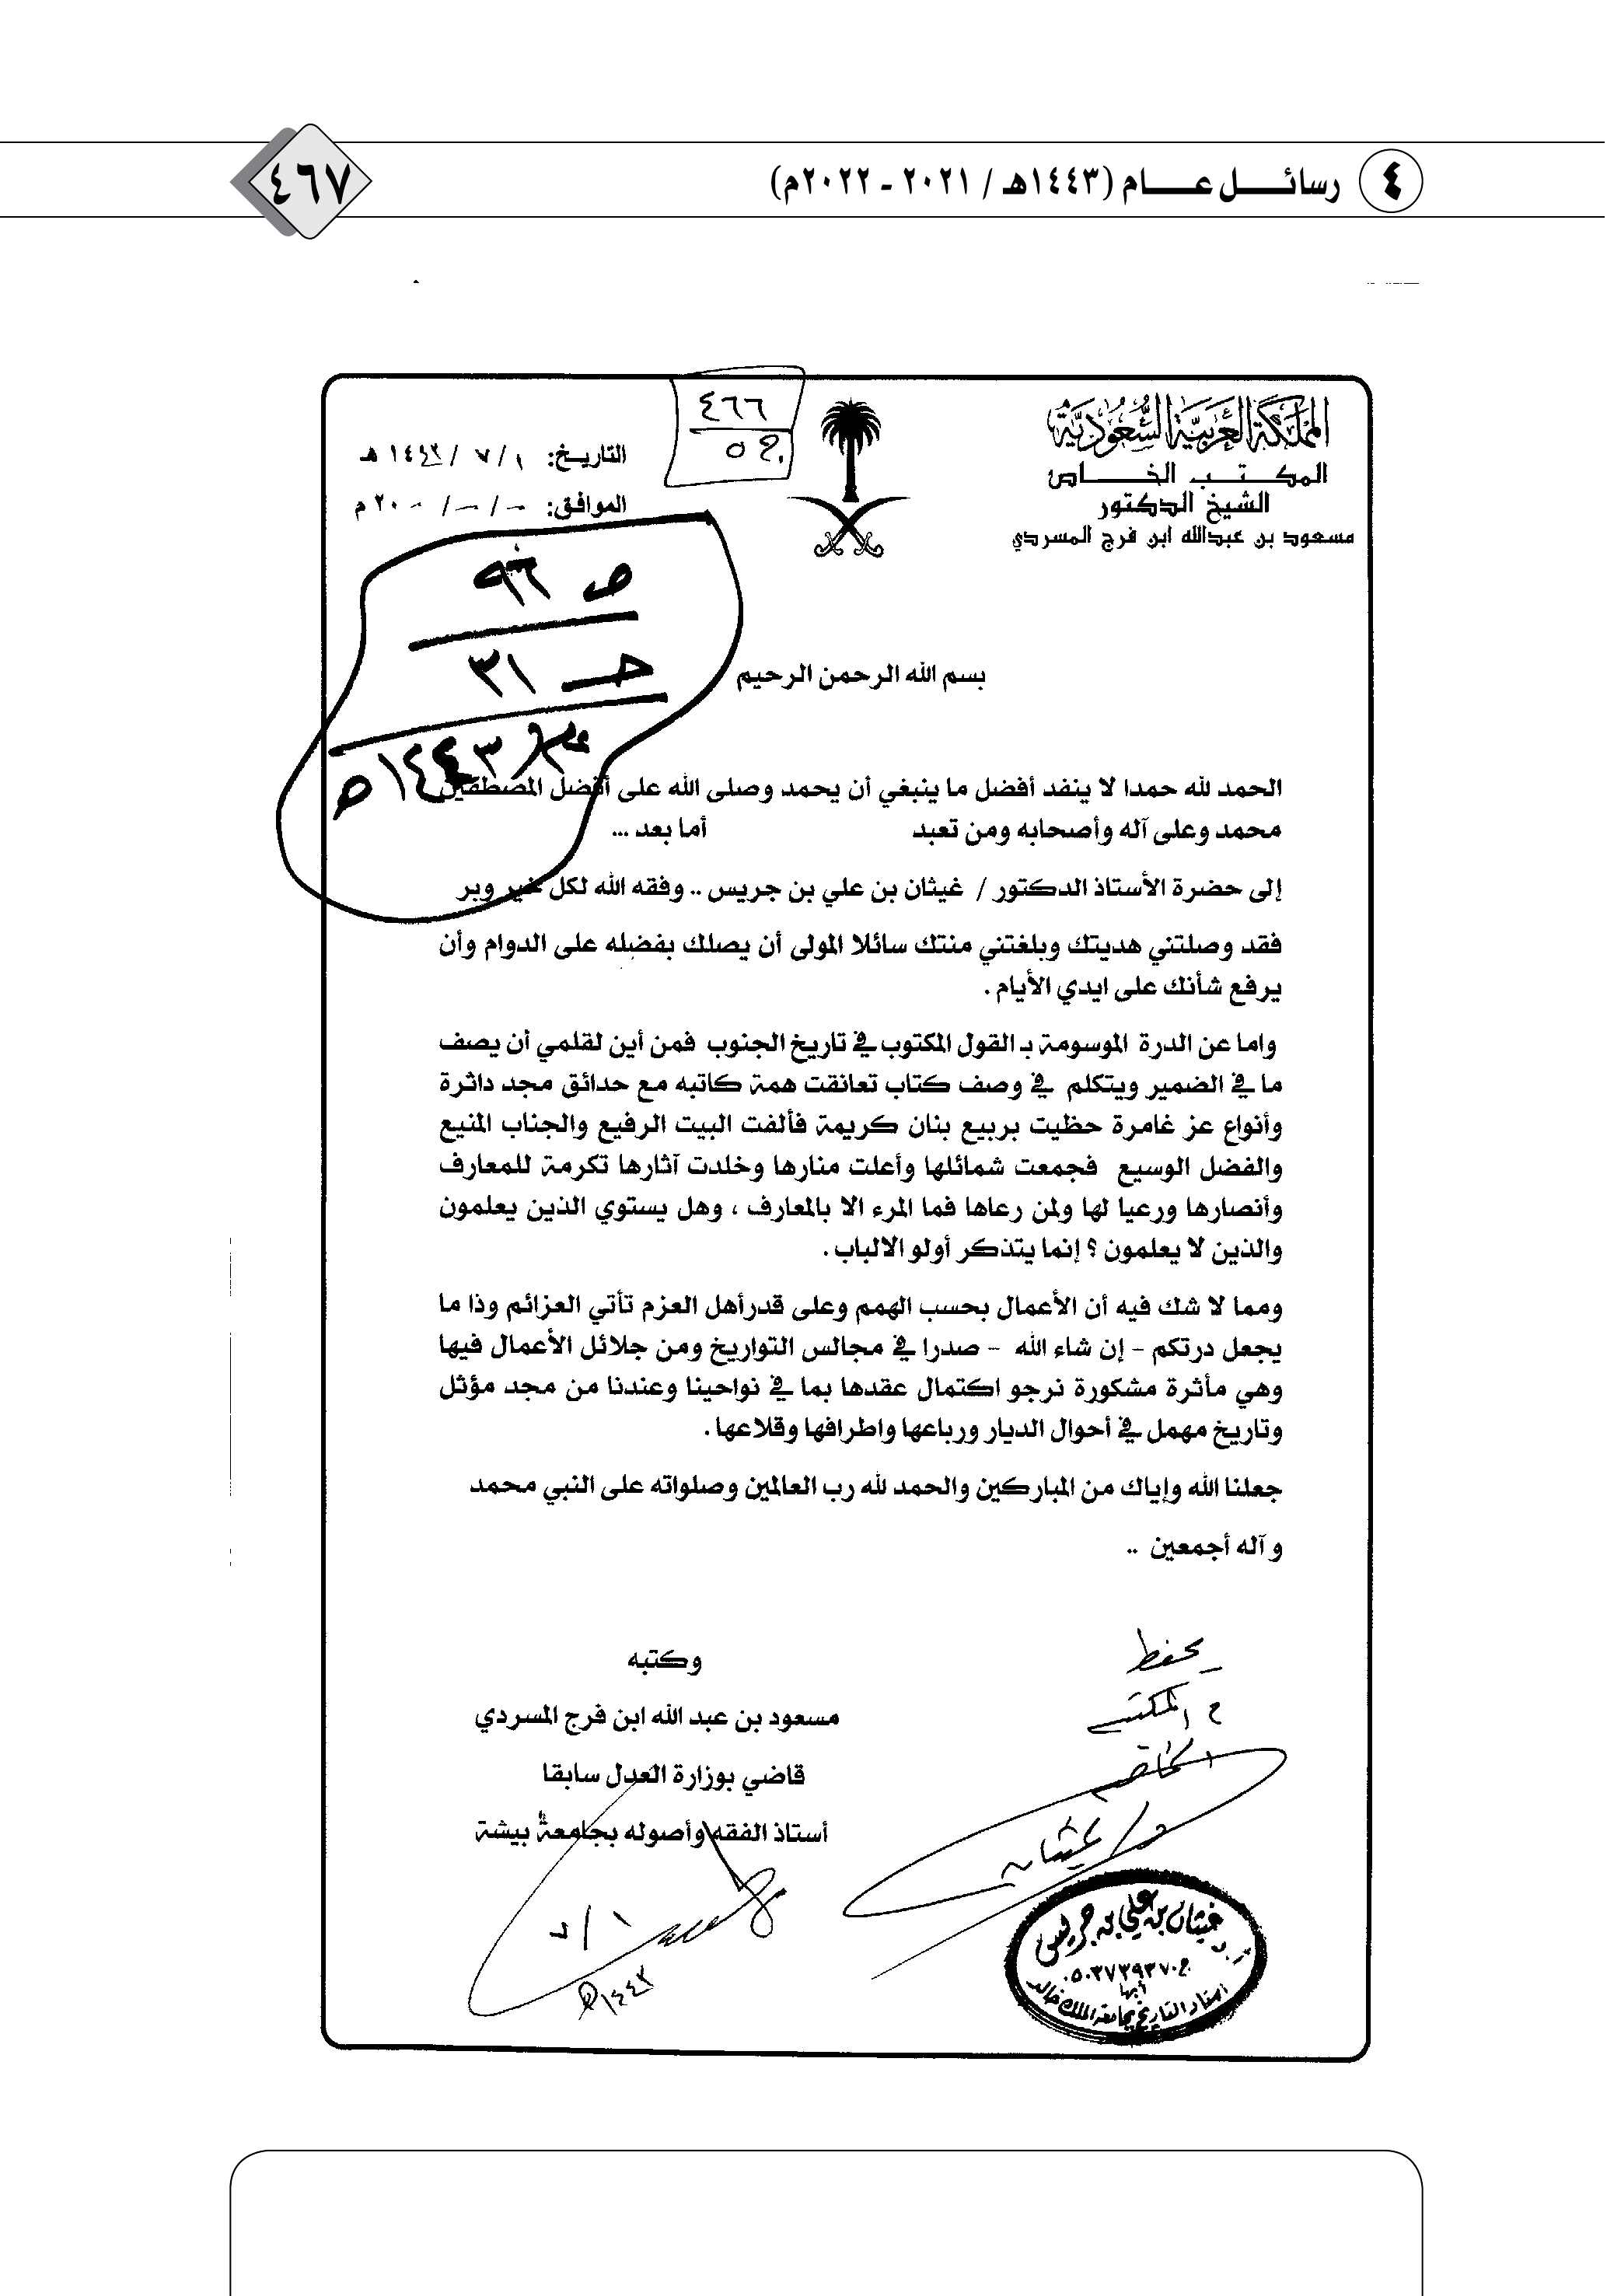 ٤ رسائل عام (١٤٤٣هـ / ٢٠٢١ - ٢٠٢٢م)
٤٦٧
المملكة العربية السعودية
المكتب الخاص
الشيخ الدكتور
مسعود بن عبدالله ابن فرج المسردي
٤٦٦
التاريخ: ١ / ٧ / ١٤٤٣ هـ
الموافق: - / - / ٢٠٠ م
ص ٩٦
حـ ٣١
١٤٤٣ هـ
بسم الله الرحمن الرحيم
الحمد لله حمدا لا ينفد أفضل ما ينبغي أن يحمد وصلى الله على أفضل المصطفين
محمد وعلى آله وأصحابه ومن تعبد أما بعد ...
إلى حضرة الأستاذ الدكتور / غيثان بن علي بن جريس .. وفقه الله لكل خير وبر
فقد وصلتني هديتك وبلغتني منتك سائلا المولى أن يصلك بفضله على الدوام وأن
يرفع شأنك على ايدي الأيام .
واما عن الدرة الموسومة بـ القول المكتوب في تاريخ الجنوب فمن أين لقلمي أن يصف
ما في الضمير ويتكلم في وصف كتاب تعانقت همة كاتبه مع حدائق مجد داثرة
وأنواع عز غامرة حظيت بربيع بنان كريمة فألفت البيت الرفيع والجناب المنيع
والفضل الوسيع فجمعت شمائلها وأعلت منارها وخلدت آثارها تكرمة للمعارف
وأنصارها ورعيا لها ولمن رعاها فما المرء الا بالمعارف ، وهل يستوي الذين يعلمون
والذين لا يعلمون ؟ إنما يتذكر أولو الالباب .
ومما لا شك فيه أن الأعمال بحسب الهمم وعلى قدرأهل العزم تأتي العزائم وذا ما
يجعل درتكم - إن شاء الله - صدرا في مجالس التواريخ ومن جلائل الأعمال فيها
وهي مأثرة مشكورة نرجو اكتمال عقدها بما في نواحينا وعندنا من مجد مؤثل
وتاريخ مهمل في أحوال الديار ورباعها واطرافها وقلاعها .
جعلنا الله وإياك من المباركين والحمد لله رب العالمين وصلواته على النبي محمد
و آله أجمعين ..
وكتبه
مسعود بن عبد الله ابن فرج المسردي
قاضي بوزارة العدل سابقا
أستاذ الفقه وأصوله بجامعة بيشة
١ / ٧
١٤٤٣ هـ
يحفظ
المكتبة
الخاصة
غيثان
غيثان بن علي بن جريس
ج ٠٥٠٣٧٣٩٣٧٠
أبها
أستاذ التاريخ بجامعة الملك خالد